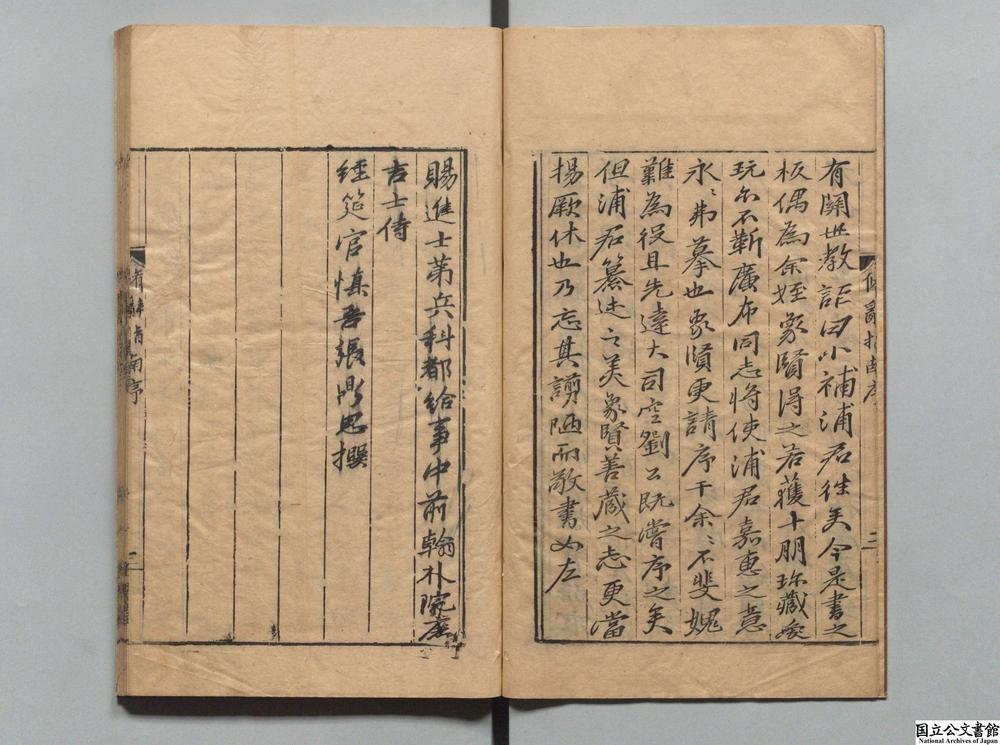 有關世教詎曰小補浦君往矣今是書之
板偶為余姪象賢得之若獲十朋珎藏愛
玩尒不靳廣布同志將使浦君嘉惠之意
永〻弗摹也象賢更請序于余〻不斐媿
難為役且先達大司空劉公既嘗序之矣
但浦君纂述之美象賢善蔵之志更當
揚厥休也乃忘其謭陋而敬書如左
脩辭指南序
三
賜進士第兵科都給事中前翰林院庶
吉士侍
經筵官慎吾張鼎思撰
脩辭指南序
三
国立公文書館
National Archives of Japan